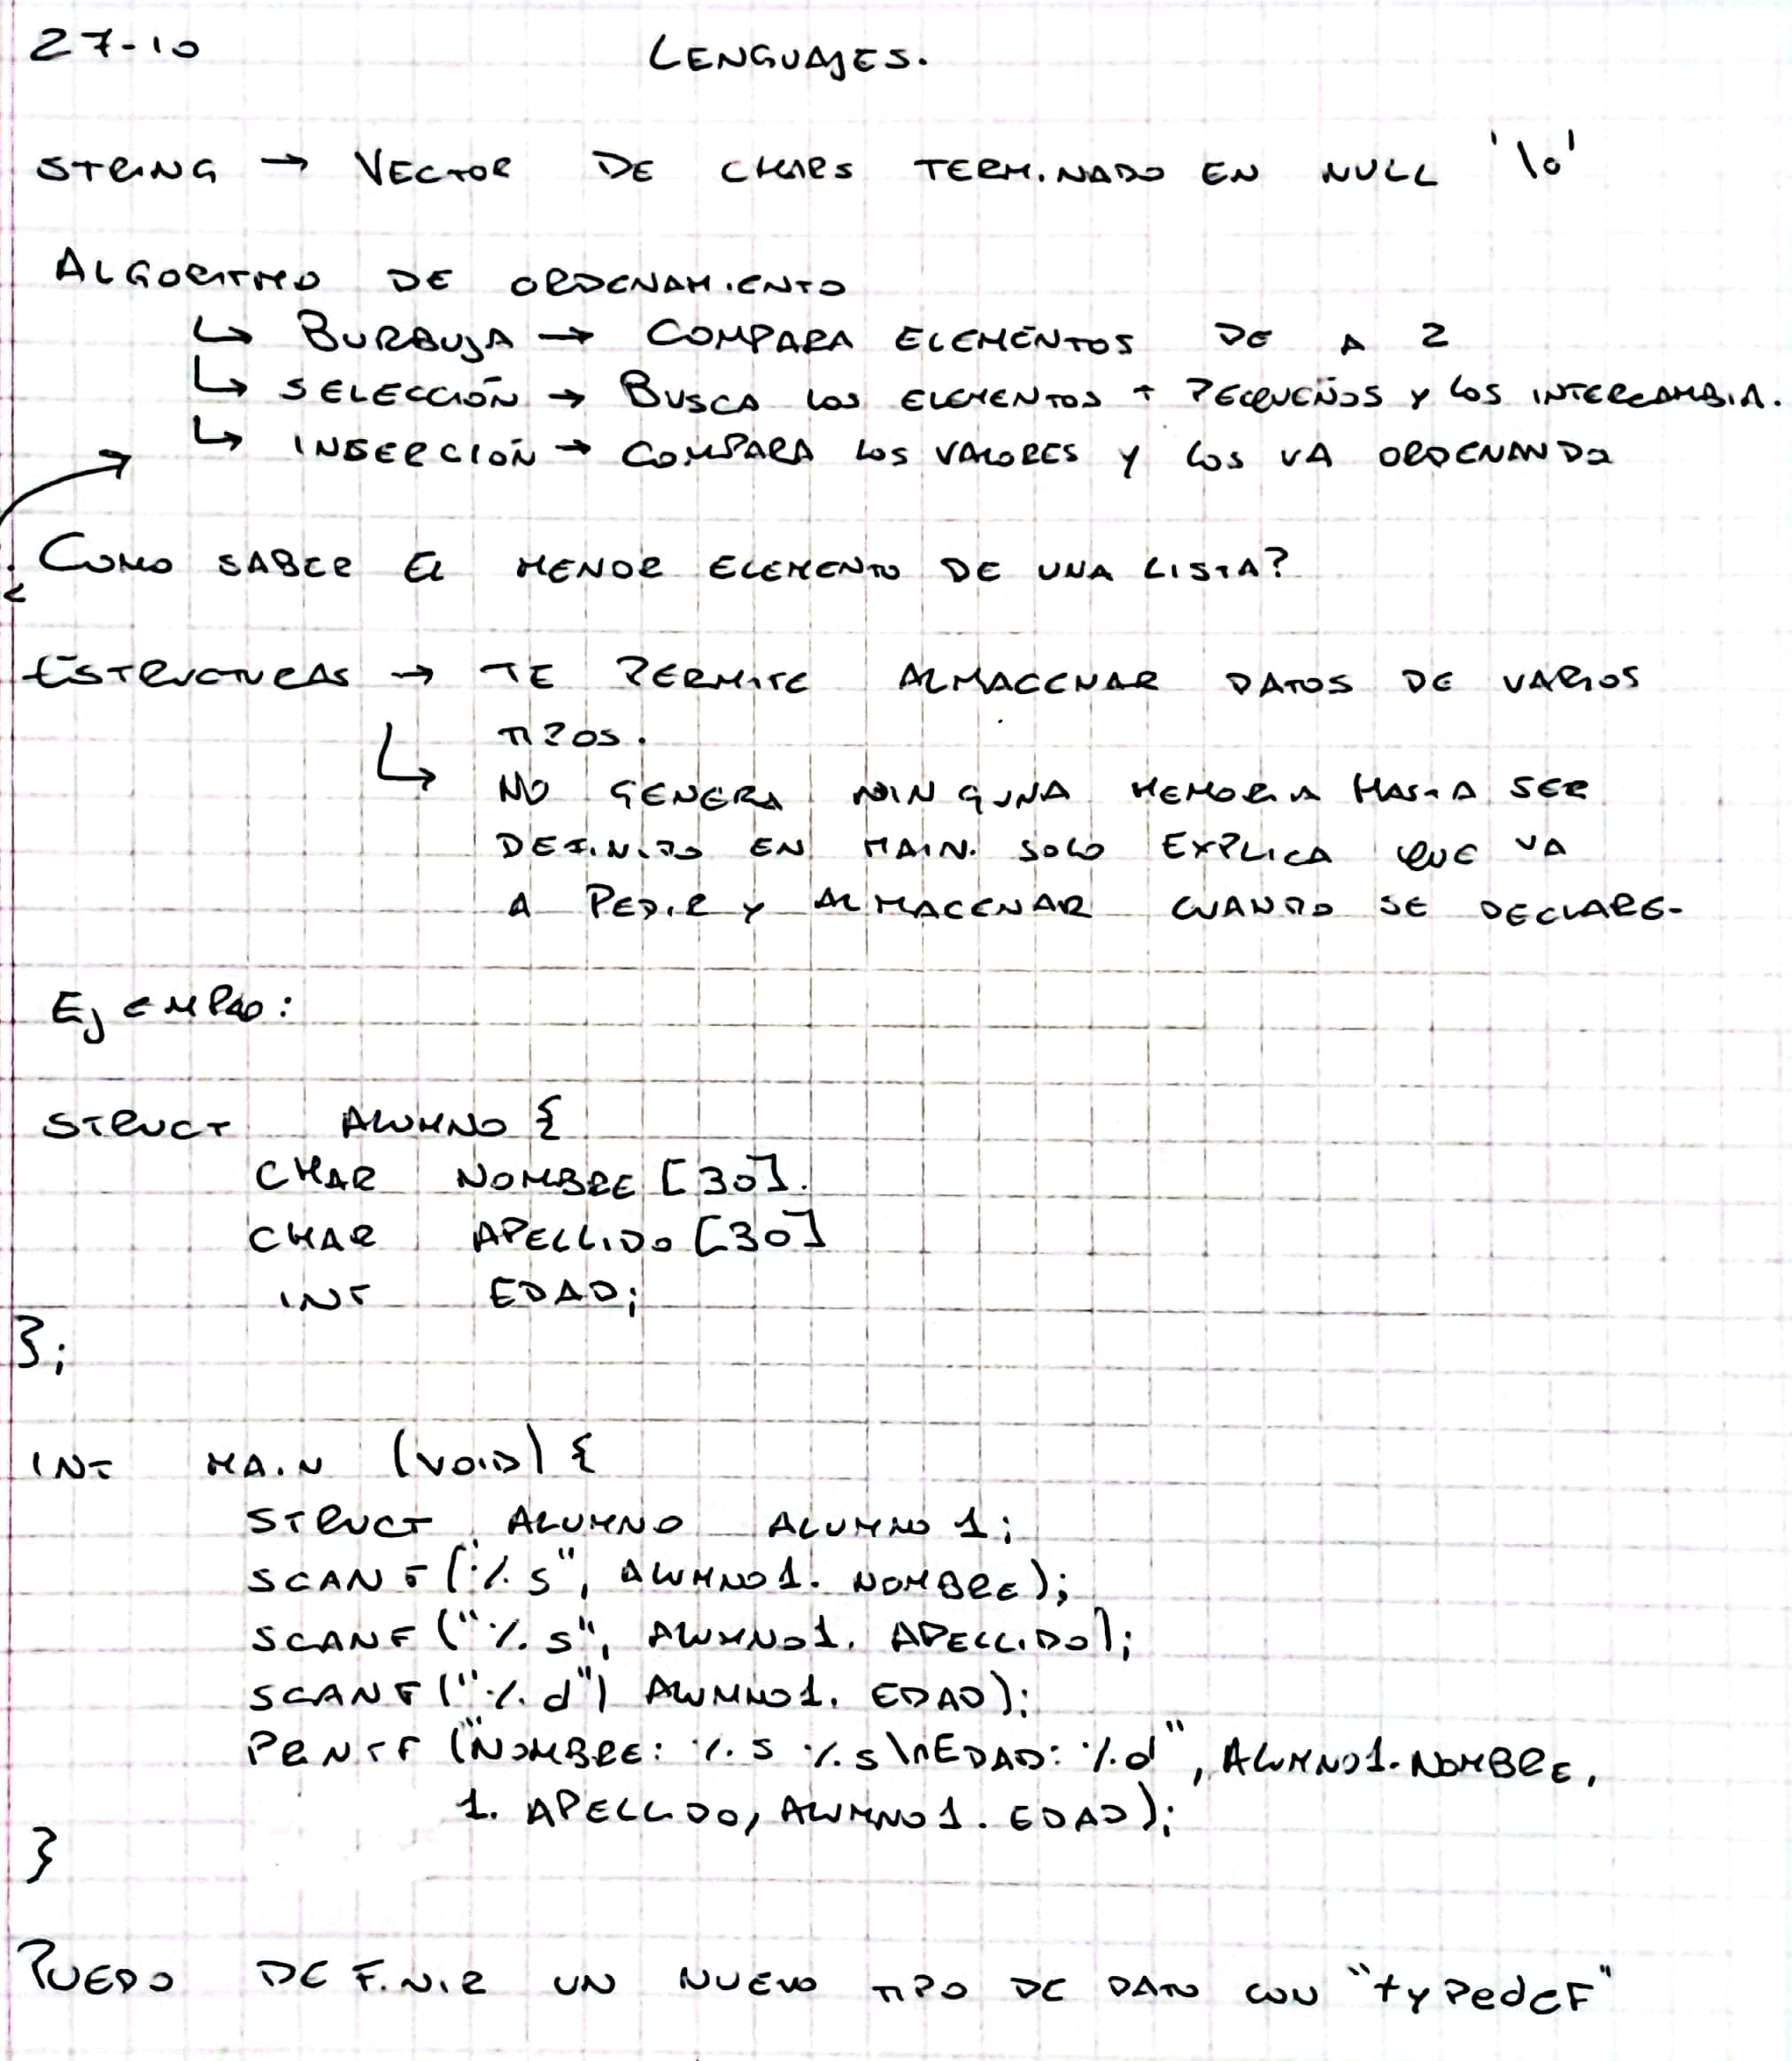 27-10
LENGUAJES.
STRING → VECTOR DE CHARS TERMINADO EN NULL '\0'
ALGORITMO DE ORDENAMIENTO
↳ BURBUJA → COMPARA ELEMENTOS DE A 2
↳ SELECCIÓN → BUSCA LOS ELEMENTOS + PEQUEÑOS Y LOS INTERCAMBIA.
↳ INSERCIÓN → COMPARA LOS VALORES Y LOS VA ORDENANDO
¿COMO SABER EL MENOR ELEMENTO DE UNA LISTA?
ESTRUCTURAS → TE PERMITE ALMACENAR DATOS DE VARIOS
TIPOS.
↳ NO GENERA NINGUNA MEMORIA HASTA SER
DEFINIDO EN MAIN. SOLO EXPLICA QUE VA
A PEDIR Y ALMACENAR CUANDO SE DECLARE-
EJEMPLO:
STRUCT ALUMNO {
CHAR NOMBRE [30].
CHAR APELLIDO [30]
INT EDAD;
};
INT MAIN (VOID) {
STRUCT ALUMNO ALUMNO 1;
SCANF ("%s", ALUMNO1. NOMBRE);
SCANF ("%s", ALUMNO1. APELLIDO);
SCANF ("%d") ALUMNO1. EDAD);
PRNTF ("NOMBRE: %s %s\nEDAD: %d", ALUMNO1.NOMBRE,
1. APELLIDO, ALUMNO1. EDAD);
}
PUEDO DEFINIR UN NUEVO TIPO DE DATO CON "typedef"